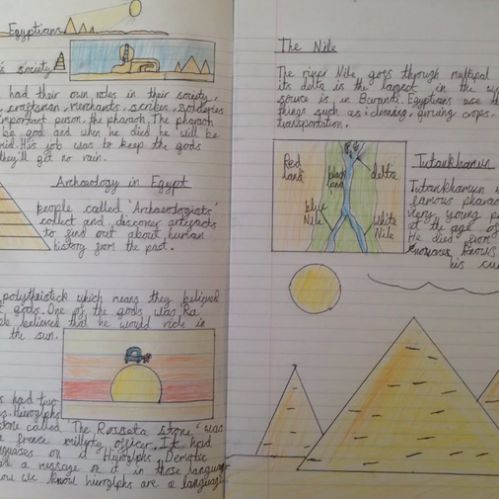 Egyptians
's society
had their own roles in their society,
craftsman, merchants, scribes, soldieries
important person, the pharaoh. The pharaoh
be god and when he died he will be
His job was to keep the gods
they'll get no rain.
Archaeology in Egypt
people called 'Archaeologists'
collect and discover artifacts
to find out about human
history from the past.
polytheistick which means they believed
gods. One of the gods was Ra
believed that he would ride in
the sun.
had two
Hieroglphs
stone called The Rosseta Stone' was
officer. It had
on it Hieroglphs, Demotic
a message on it in those language
now we know hieroglphs are a language
The Nile
The river Nile, goes through
its delta is the largest in the
source is in Burundi. Egyptians use
things such as: cleaning, growing crops,
transportation.
Red land
black land
delta
blue Nile
white Nile
Tutankhamun
Tutankhamun
famous pharao
very young
at the age of
He died
knows
his cu